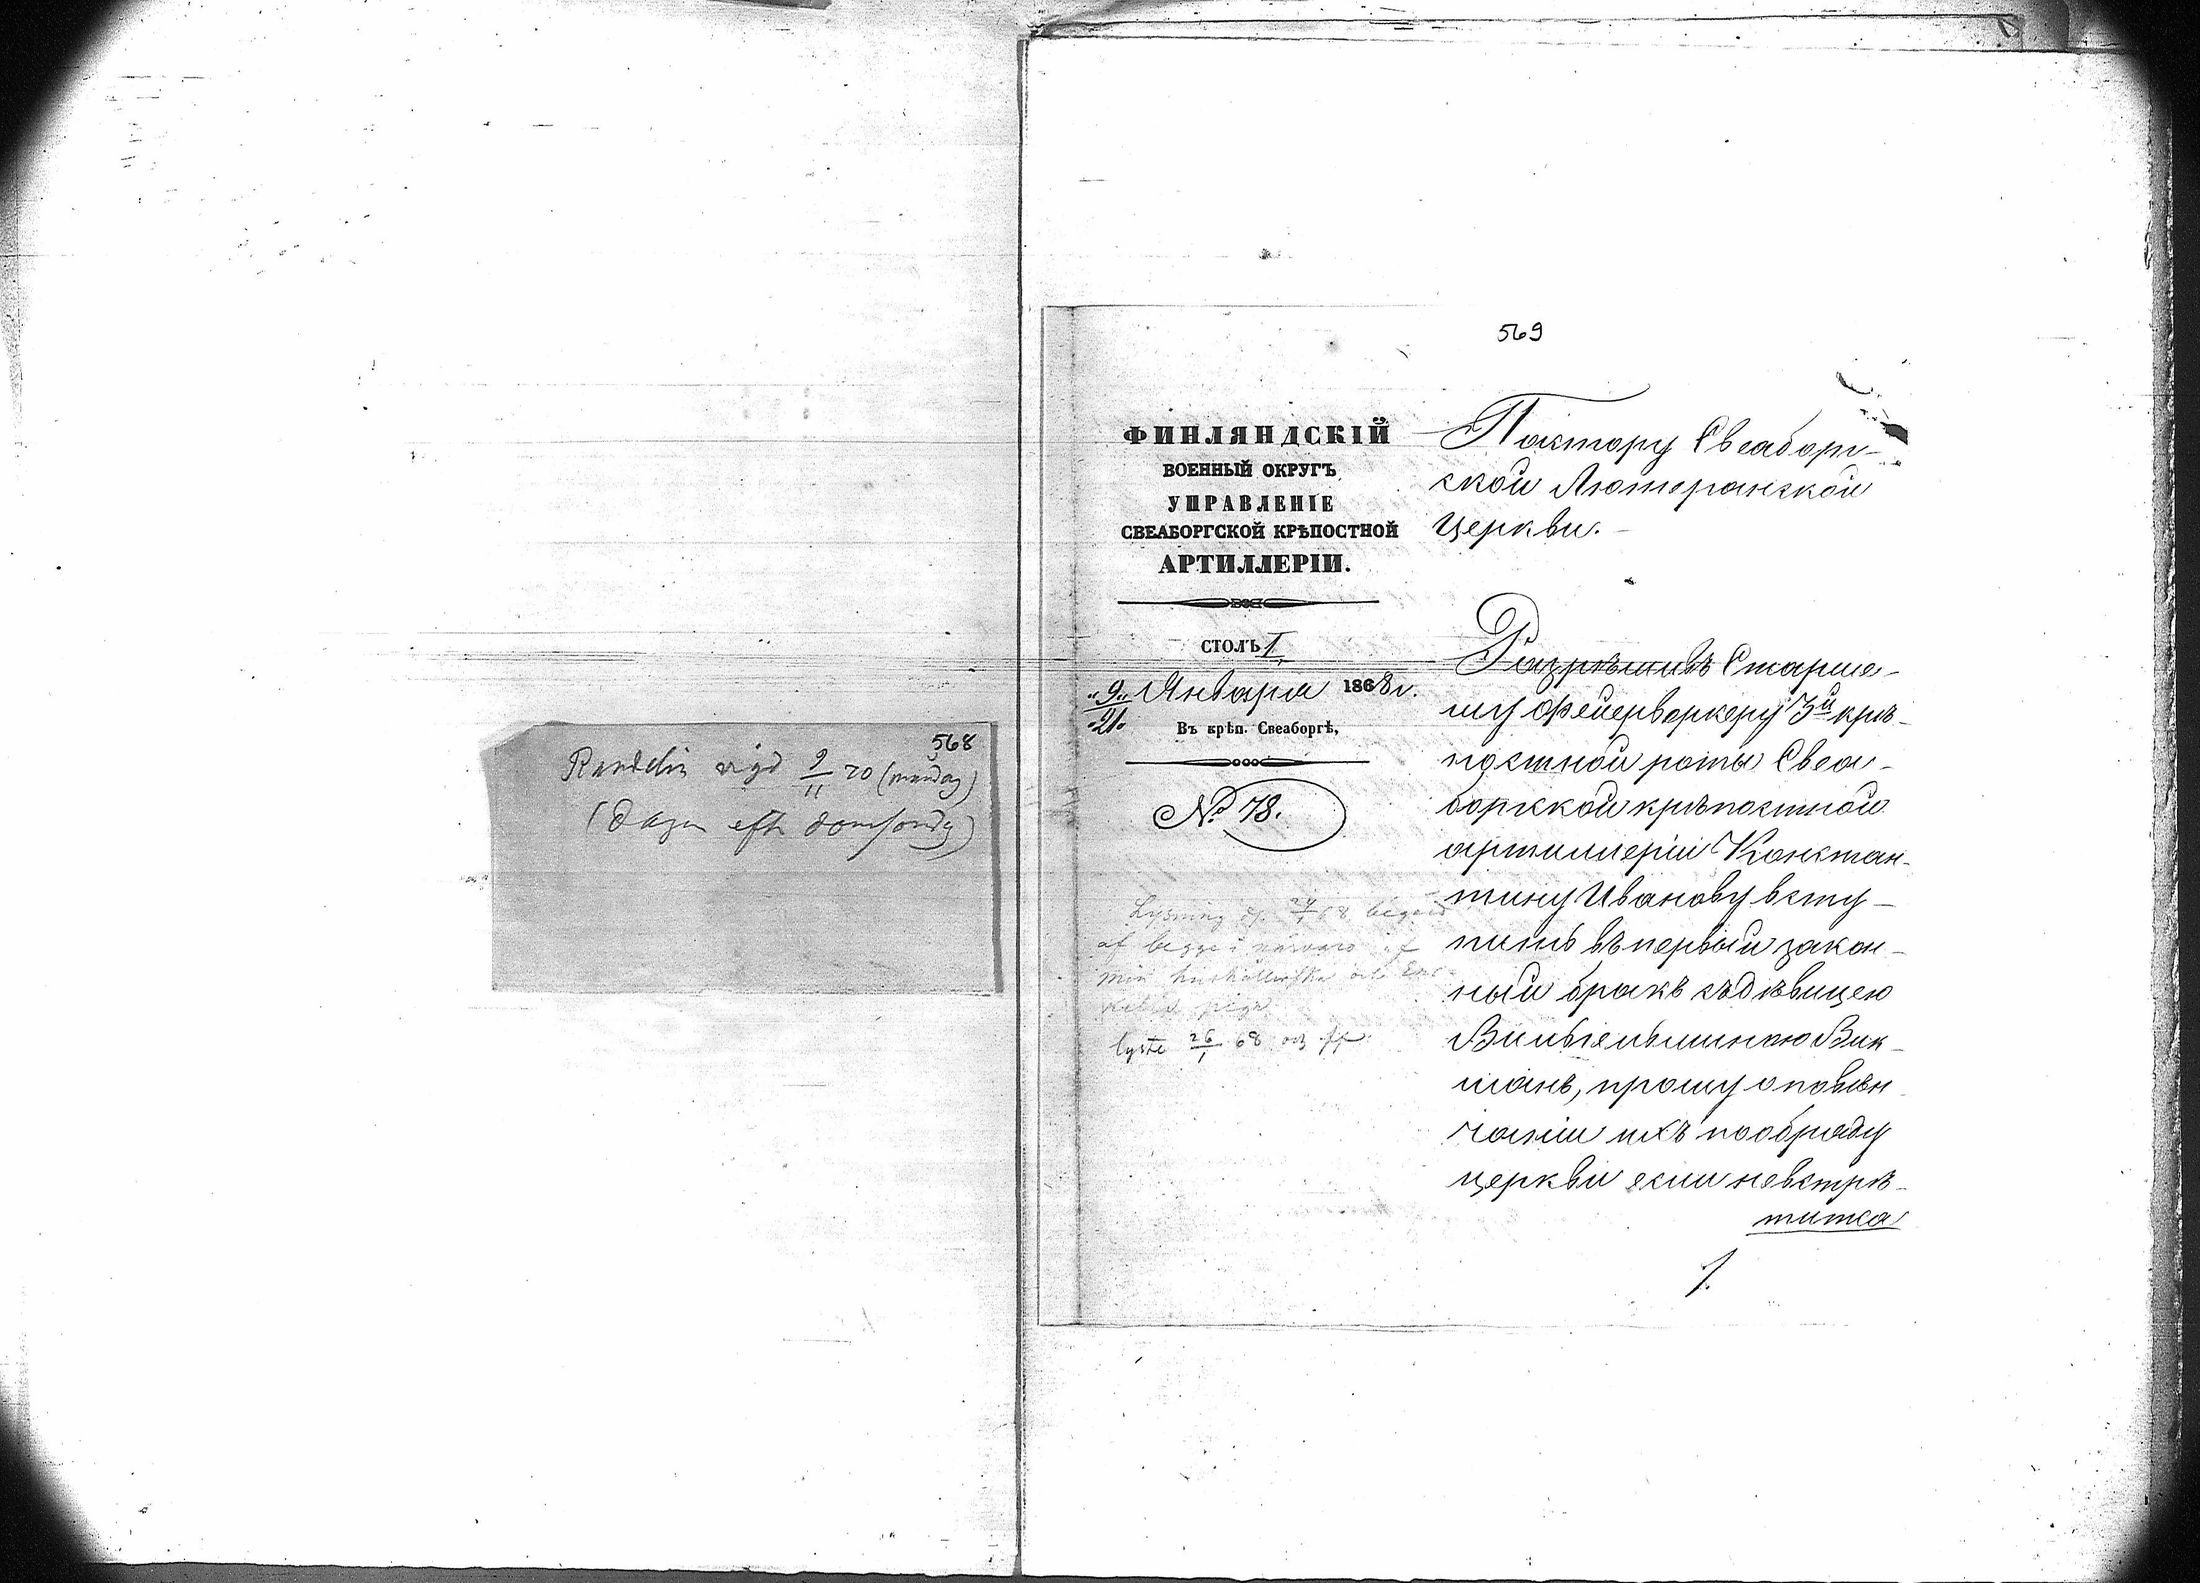 568
Randelin vigd 9/11 70 (måndag)
(Dagen efter domsöndag)
569
ФИНЛЯНДСКІЙ
ВОЕННЫЙ ОКРУГЪ
УПРАВЛЕНІЕ
СВЕАБОРГСКОЙ КРѢПОСТНОЙ
АРТИЛЛЕРІИ.
СТОЛЪ 1.
"9" Января 1868 г.
"21"
Въ крѣп. Свеаборгѣ,
№ 78.
Lysning d. 24/1 68 begärd
af begge i närvaro af
min hushållerska och
piga
lyste 26/1 68 och ff
Пастору Свеаборг-
ской Лютеранской
Церкви.
Разрѣшивъ Старше-
му Фейерверкеру 3й крѣ-
постной роты Свеа-
боргской крѣпостной
артиллеріи Констан-
тину Иванову всту-
пить въ первый закон-
ный бракъ съ дѣвицею
Вильгельминою Вик-
манъ, прошу о повѣн
чаніи ихъ по обряду
церкви если не встрѣ-
тится
1.